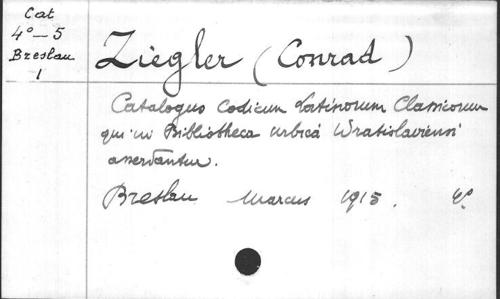 Cat
4° — 5
Breslau
1
Ziegler (Conrad)
Catalogus Codicum Latinorum Classicorum
qui in Bibliotheca Urbica Wratislaviensi
asservantur.
Breslau Marcus 1915.